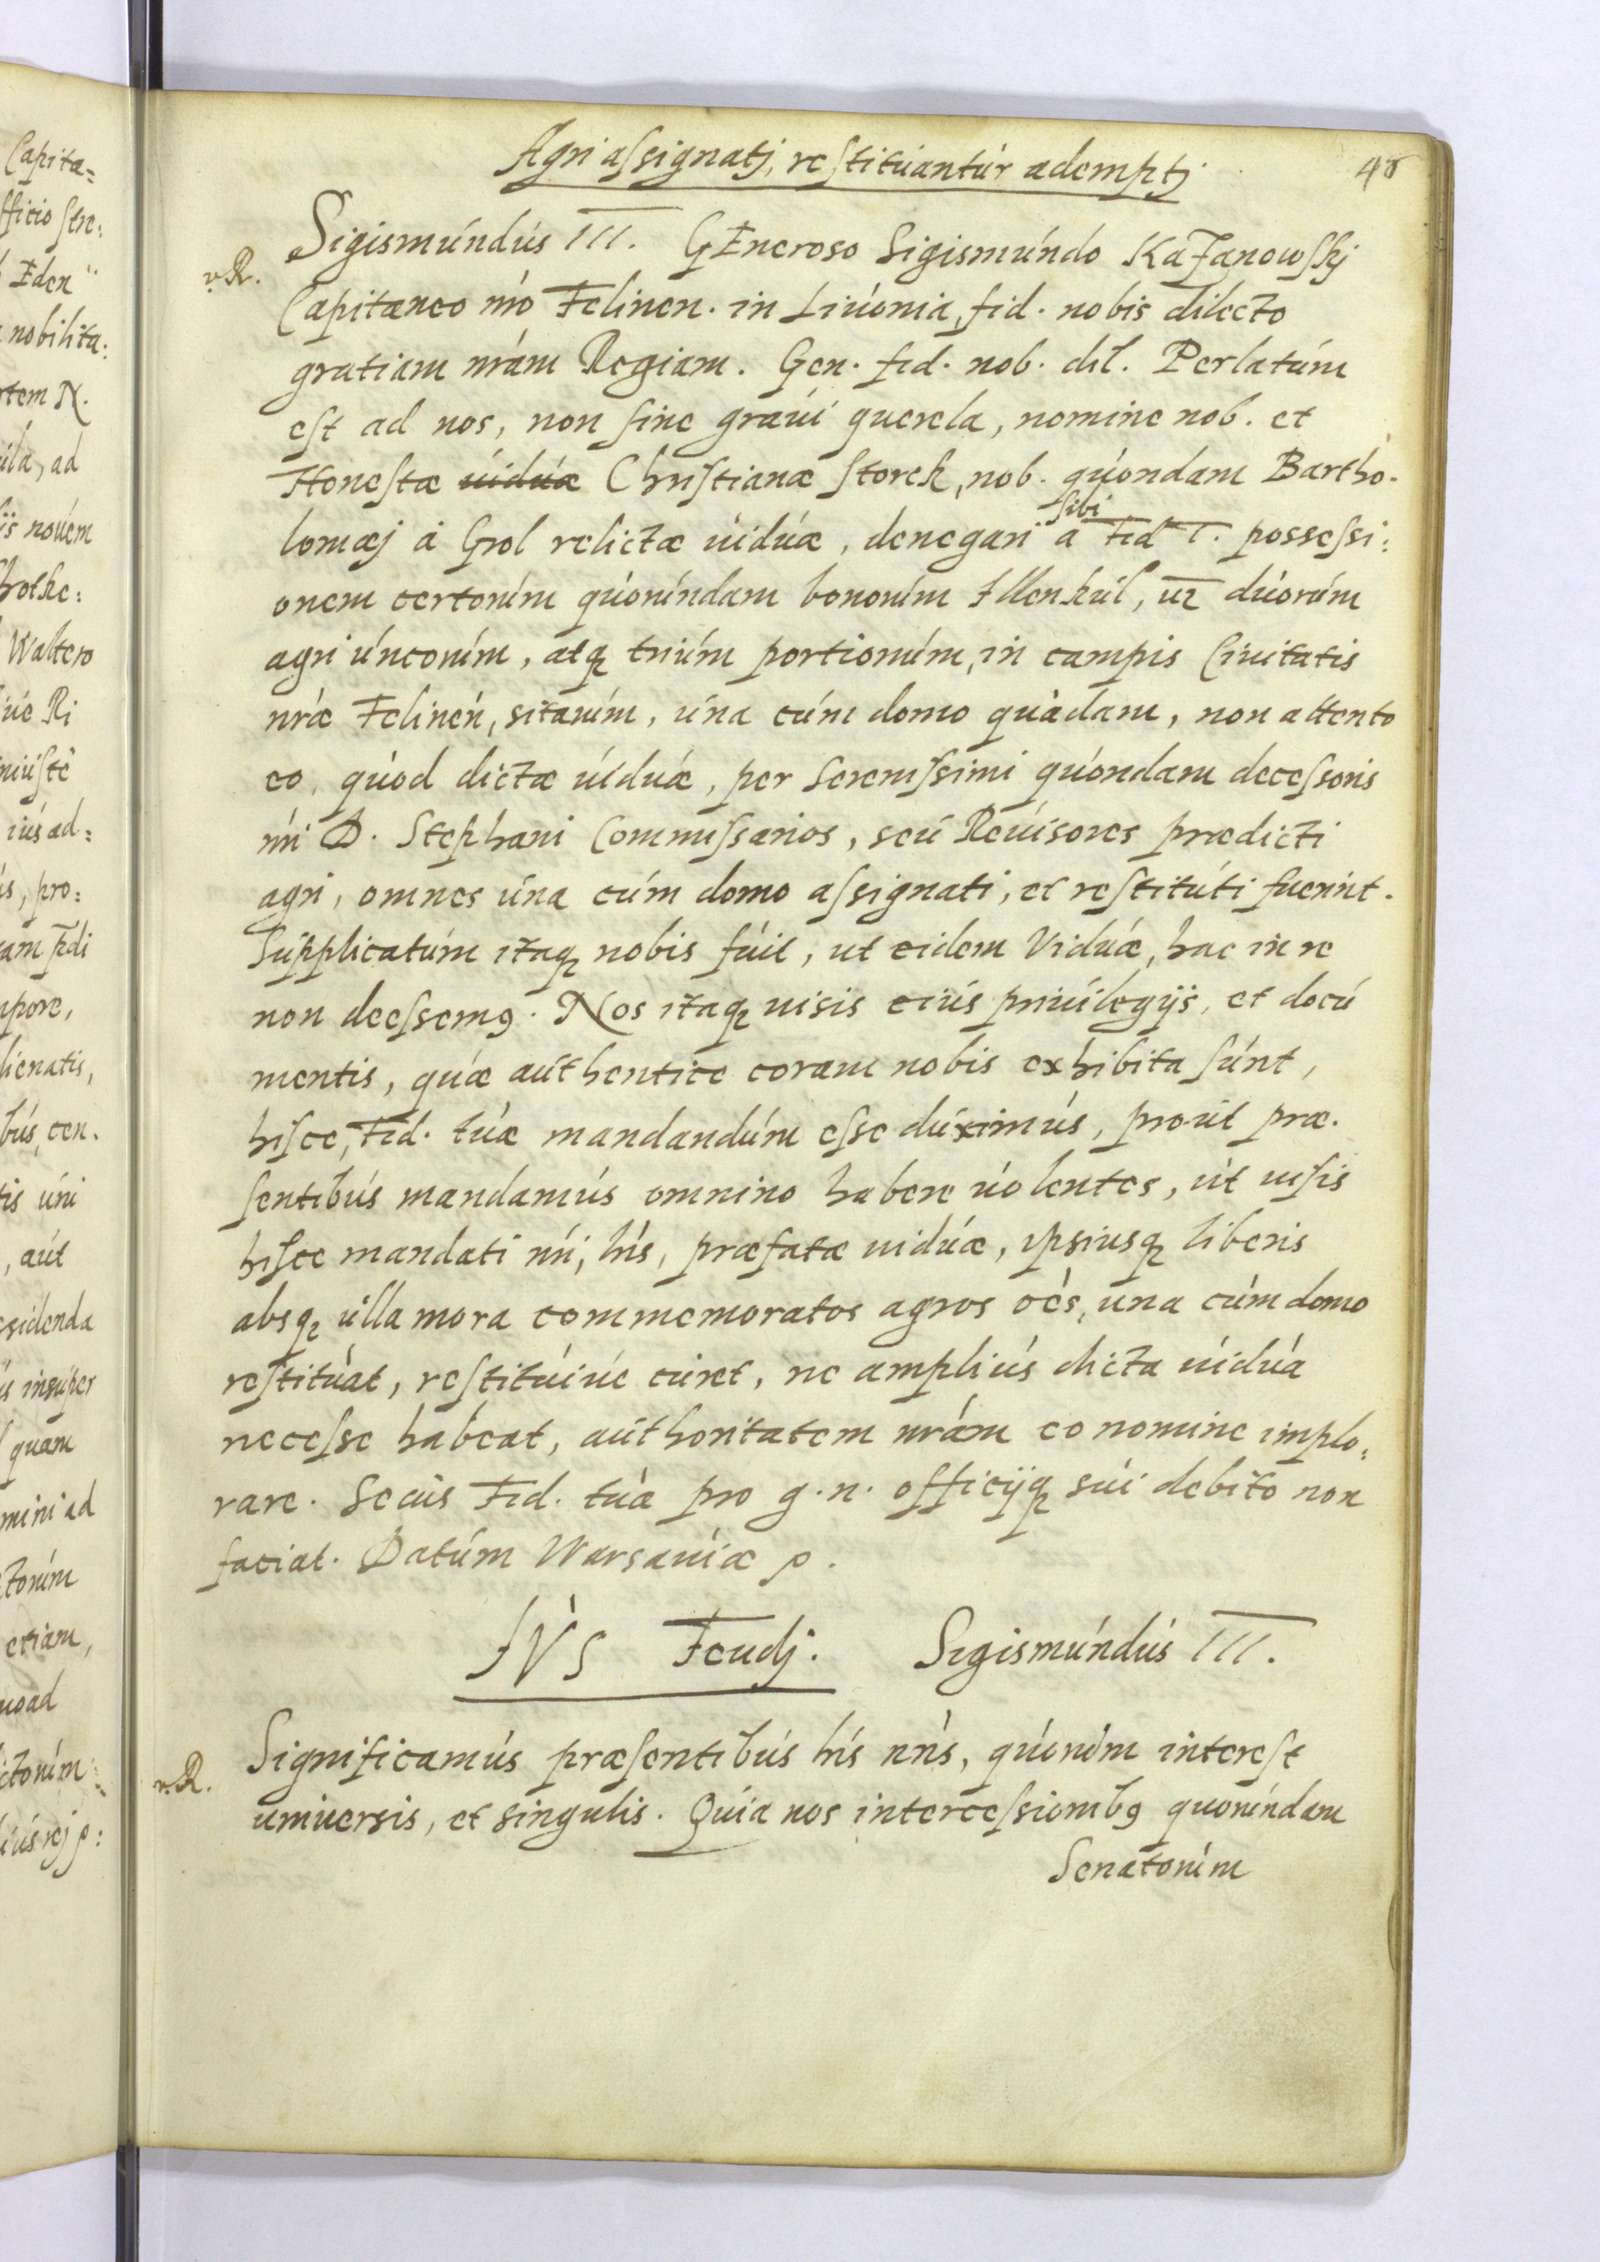 Capita=
fficio stre:
Eden
nobilita:
rtem N.
ila, ad
ijs novém
holke:
Waltero
iúe Ri
niúste
iús ad=
ús, pro:
tam pdi
mpore,
lienatis,
bús, cen.
tis úni
, aút
ssidenda
ús insúper
quam
mini ad
torúm
etiam,
uoad
ctorúm
iús rej p:
Agri assignatj, restitúantúr ademptj
48
v. R.
Sigismúndús III. GEneroso Sigismúndo Kazanowskj
Capitaneo nr̃o Felinen. in Liúonia, fid. nobis dilecto
gratiam nrám Regiam. Gen. fid. nob. dil. Perlatúm
est ad nos, non sine graúi querela, nomine nob. et
Honestæ úidúæ Christianæ Storck, nob. qúondam Bartho-
sibi
lomæj á Grol relictæ úidúæ, denegari a Fid T. possessi:
onem certorúm qúorúndam bonorúm Illenkúl, uz dúorúm
agri únconúm, atq; triúm portionúm, in campis Ciuitatis
nræ Felinen, sitarúm, úna cúm domo qúàdam, non attento
eo, qúod dictæ úidúæ, per Serenissimi qúondam decessoris
nri D. Stephani Commissarios, seú Reúisores prædicti
agri, omnes úna cúm domo assignati, et restitúti fuerint.
Súpplicatúm itaq; nobis fúit, ut eidem Vidúæ, hac in re
non deessemg. Nos itaq; uisis eiús priúilegijs, et docú
mentis, qúæ aúthentice coram nobis exhibita súnt,
hisce, Fid. túæ mandandúm esse dúximús, proút præ-
sentibús mandamús omnino habere úolentes, út uisis
hisce mandati nri, lris, præfatæ uidúæ, ipsiusq; liberis
absq; úlla mora commemoratos agros oẽs, úna cúm domo
restitúat, restitúiúe cúret, ne ampliús dicta úidúa
necesse habeat, aúthoritatem nrám eo nomine implo:
rare. Secús Fid. túa pro g. n. officijq; súi debito non
faciat. Datúm Warsaúiæ p.
IVS Feudj. Sigismúndús III.
v. R.
Significamús præsentibús lris nris, qúorúm interest
uniuersis, et singulis. Quia nos intercessionibg quorúndam
Senatorúm